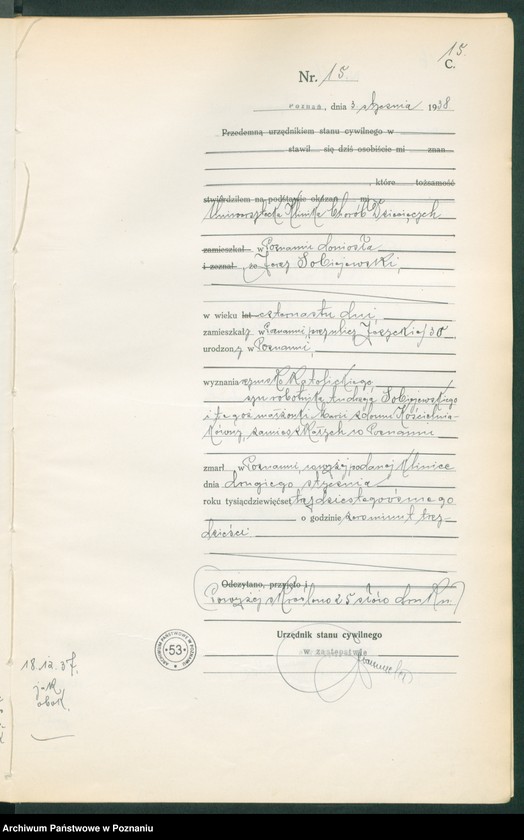 15.
C.
Nr. 15.
Poznań, dnia 3 stycznia 1938
Przedemną urzędnikiem stanu cywilnego w
stawił się dziś osobiście mi znan
, które tożsamość
stwierdziłem na podstawie okazan mi
Uniwersytecka Klinika Chorób Dziecięcych
zamieszkał w Poznaniu doniosła
i zeznał, że Jerzy Sobiejewski,
w wieku lat czternastu dni,
zamieszkał w Poznaniu, przy ulicy 30
urodzony w Poznaniu,
wyznania rzymskokatolickiego
syn robotnika Andrzeja Sobiejewskiego
i tegoż małżonki Marji z domu Kościelnia-
kówny, zamieszkałych w Poznaniu
zmarł w Poznaniu, wyżej podanej Klinice
dnia drugiego stycznia
roku tysiącdziewięćset trzydziestegoósmego
o godzinie zero minut trzy-
dzieści:
Odczytano, przyjęto i
Powyżej skreślono 25 słów druku
Urzędnik stanu cywilnego
w zastępstwie
ARCHIWUM PAŃSTWOWE W POZNANIU
53
18.12.37.
jak
obok.
Archiwum Państwowe w Poznaniu